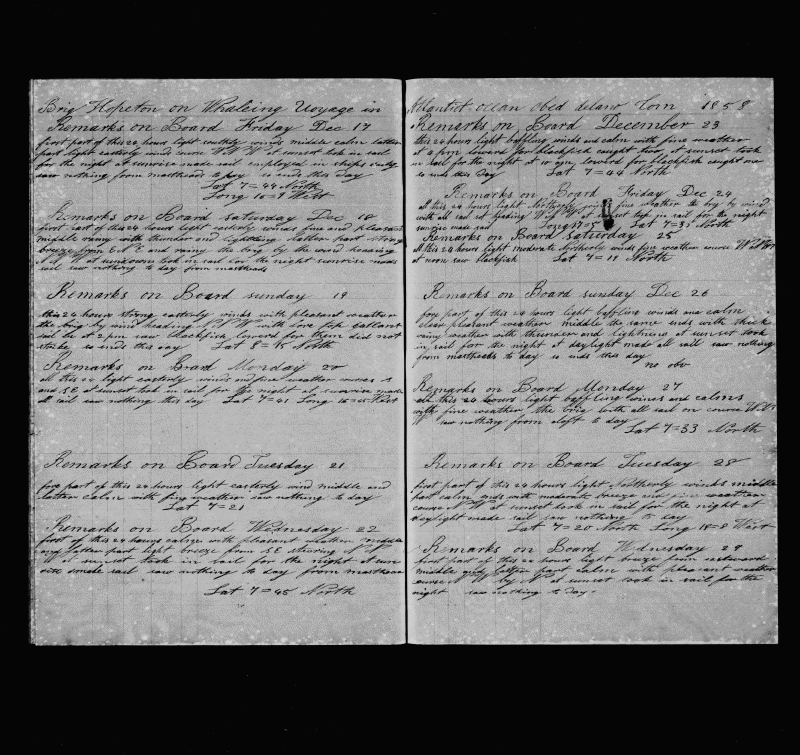 Brig Hopeton on Whaleing Voyage in
Remarks on Board Friday Dec 17
first part of this 24 hours light southly winds middle calm latter
part light easterly winds course at sunset took in sail
for the night at sunrise made sail employed in ships duty
saw nothing from mastheads to day so ends this day
Lat 7=44 North
Long 16=8 West
Remarks on Board Saturday Dec 18
first part of this 24 hours light easterly winds fine and pleasant
middle rainy with thunder and lightning latter part strong
breeze from and rainy the brig by the wind heading
at sundown took in sail for the night sunrise made
sail saw nothing to day from mastheads
Remarks on Board sunday 19
this 24 hours strong easterly winds with pleasant weather
the brig by wind heading with top gallant
sail at 2 pm saw blackfish lowerd for them did not
strike so ends this day Lat 8=15 North
Remarks on Board Monday 20
all this 24 light easterly winds and fine weather
and at sunset took in sail for the night at sunrise made
all sail saw nothing this day Lat 7=41 Long West
Remarks on Board Tuesday 21
for part of this 24 hours light easterly wind middle and
latter calm with fine weather saw nothing to day
Lat 7=21
Remarks on Board Wednesday 22
first of this 24 hours calm with pleasant weather middle
and latter part light breeze from SE steering
at sunset took in sail for the night at sun
rise made sail saw nothing to day from masthead
Lat 7=45 North
Atlantict ocean obed delano Com 1858
Remarks on Board December 23
this 24 hours light baffling winds and calm with fine weather
at 4 pm lowerd for blackfish caught two at sunset took
in sail for the night at lowerd for blackfish caught one
so ends this day Lat 7=44 North
Remarks on Board Friday Dec 24
all this 24 hours light Northerly winds fine weather the brig by wind
with all sail set heading at sunset took in sail for the night
sunrise made sail Long Lat 7=33 North
Remarks on Board Saturday 25
all this 24 hours light moderate Northerly winds fine weather course
at noon saw blackfish Lat 7=11 North
Remarks on Board sunday Dec 26
for part of this 24 hours light baffling winds and calm
clear pleasant weather middle the same ends with thick
rainy weather with thunder and lightning at sunset took
in sail for the night at daylight made all sail saw nothing
from mastheads to day so ends this day
no obv
Remarks on Board Monday 27
all this 24 hours light baffling winds and calms
with fine weather the brig with all sail on course
saw nothing from aloft to day
Lat 7=33 North
Remarks on Board Tuesday 28
first part of this 24 hours light Northerly winds middle
part calm ends with moderate breeze and fine weather
course N W at sunset took in sail for the night at
daylight made sail saw nothing to day
Lat 7=20 North Long 18=8 West
Remarks on Board Wdnesday 29
first part of this 24 hours light breeze from eastward
middle and latter part calm with pleasant weather
course N W by N at sunset took in sail for the
night saw nothing to day